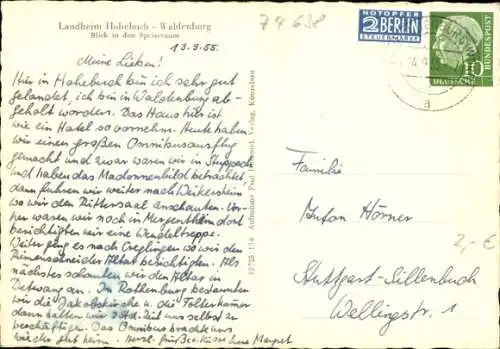 Landheim Hohebuch - Waldenburg
Blick in den Speiseraum
13.9.55.
Meine Lieben!
Hier in Hohebuch bin ich sehr gut
gelandet, ich bin in Waldenburg ab-
geholt worden. Das Haus hier ist
wie ein Hotel so vornehm. Heute haben
wir einen großen Omnibusausflug
gemacht und zwar waren wir in Stuppach
und haben das Madonnenbild betrachtet,
dann fuhren wir weiter nach Weikersheim
wo wir den Rittersaal anschauten. Vor-
her waren wir noch in Mergentheim dort
besichtigten wir eine Wendeltreppe.
Weiter ging es nach Creglingen wo wir den
Riemenschneider Altar besichtigten. Als
nächstes schauten wir den Altar in
Detwang an. In Rothenburg bestaunten
wir die Jakobskirche u. die Folterkammer
dann hatten wir 2 Std. Zeit uns selbst zu
beschäftigen. Das Omnibus brachte uns
wieder gut heim. Herzl. Grüße Küsse Eure Margret
12 728 11a Aufnahme: Paul Verlag, Künzelsau
74 638
NOTOPFER
2 BERLIN
STEUERMARKE
10
DEUTSCHE
BUNDESPOST
a
Familie
Anton Hörner
Stuttgart-Sillenbuch
Wellingstr. 1
2,- €